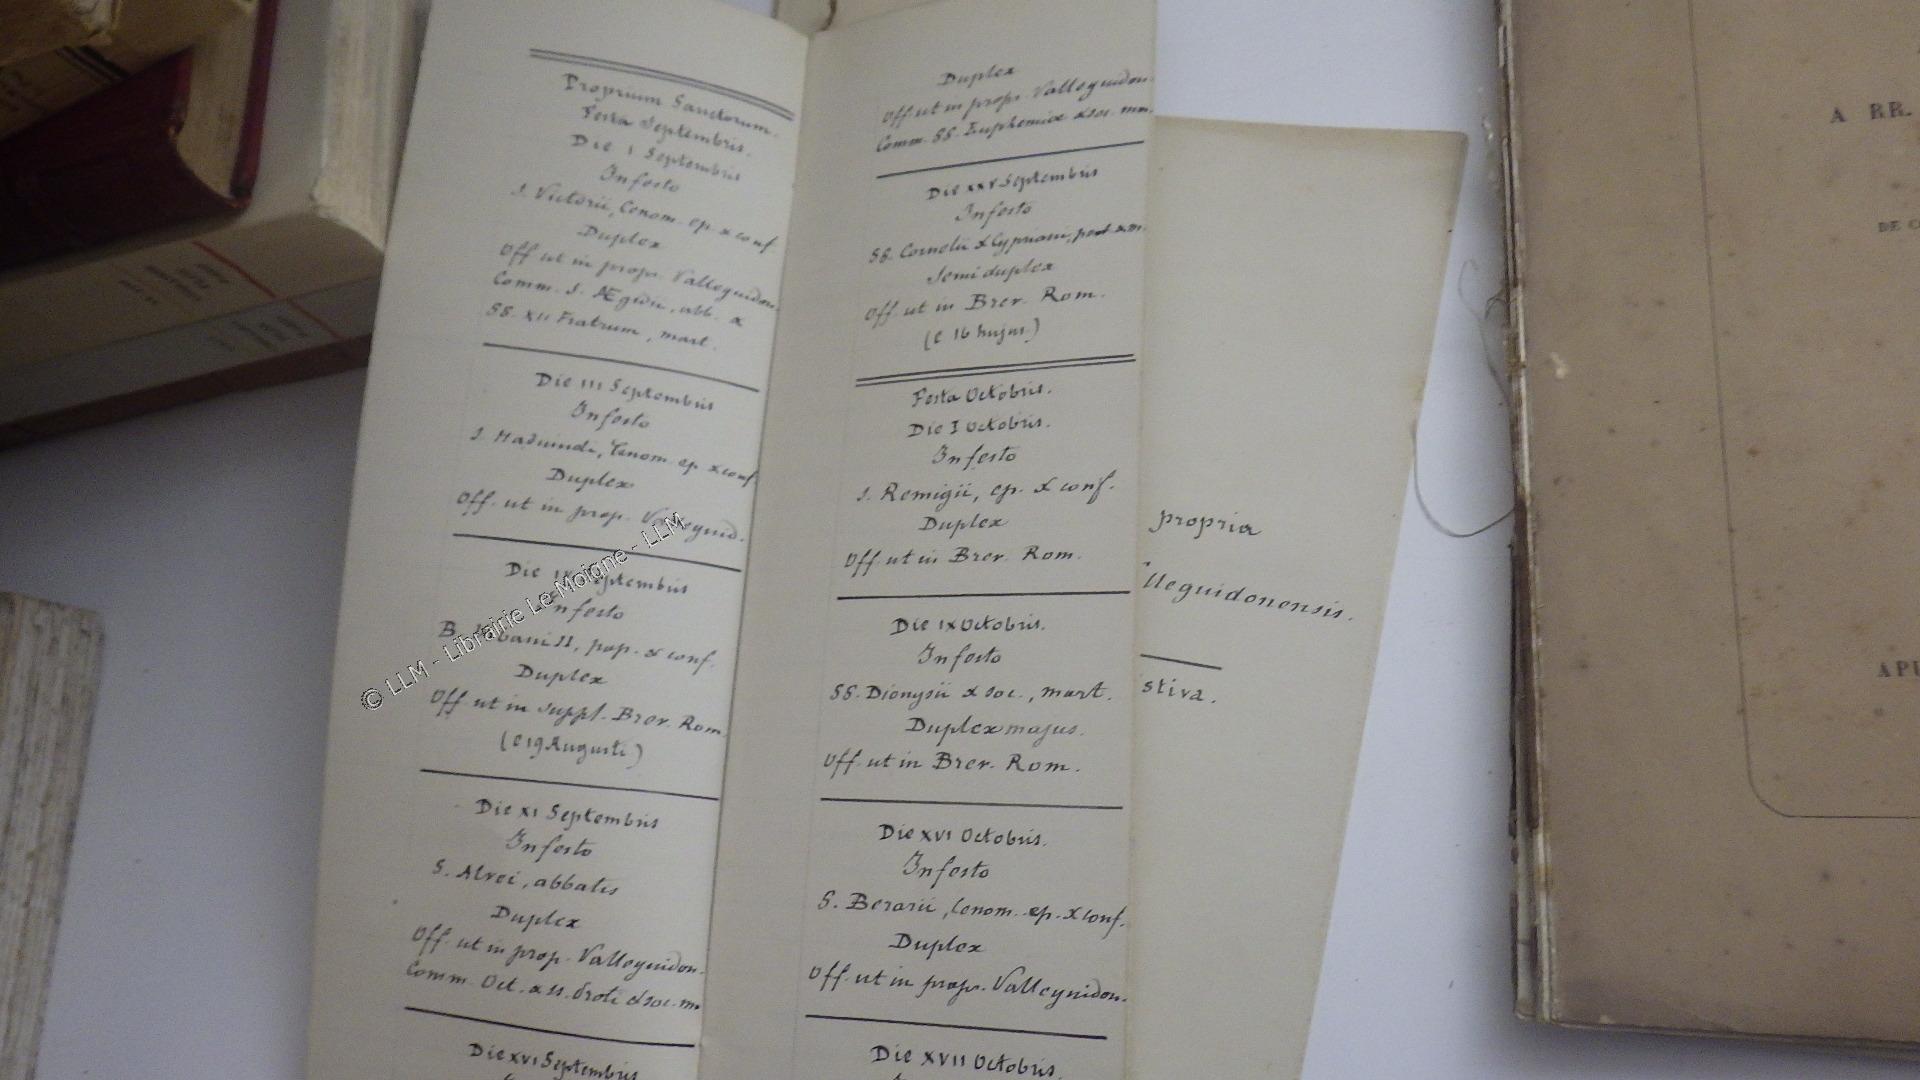 Proprium Sanctorum.
Festa Septembris.
Die I Septembris
In festo
S. Victorii, Cenom. ep. & conf.
Duplex
Off. ut in prop. Valleguidon.
Comm. S. Ægidii, abb. &
SS. XII Fratrum, mart.
Die III Septembris
In festo
S. Haduindi, Cenom. ep. & conf.
Duplex
Off. ut in prop. Valleguid.
Die IX Septembris
In festo
B. Urbani II, pap. & conf.
Duplex
Off. ut in suppl. Brev. Rom.
(e 19 Augusti)
Die XI Septembris
In festo
S. Alvei, abbatis
Duplex
Off. ut in prop. Valleguidon.
Comm. Oct. & SS. Proti & soc. mm
Die XVI Septembris
Duplex
Off. ut in prop. Valleguidon.
Comm. SS. Euphemiæ & soc. mm.
Die XXV Septembris
In festo
SS. Cornelii & Cypriani, pont. & m.
Semiduplex
Off. ut in Brev. Rom.
(e 16 hujus)
Festa Octobris.
Die I Octobris.
In festo
S. Remigii, ep. & conf.
Duplex
Off. ut in Brev. Rom.
Die IX Octobris.
In festo
SS. Dionysii & soc., mart.
Duplex majus.
Off. ut in Brev. Rom.
Die XVI Octobris.
In festo
S. Berarii, Cenom. ep. & conf.
Duplex
Off. ut in prop. Valleguidon.
Die XVII Octobris.
propria
lleguidonensis.
stiva.
A RR.
DE C
AP
© LLM - Librairie Le Moigne - LLM